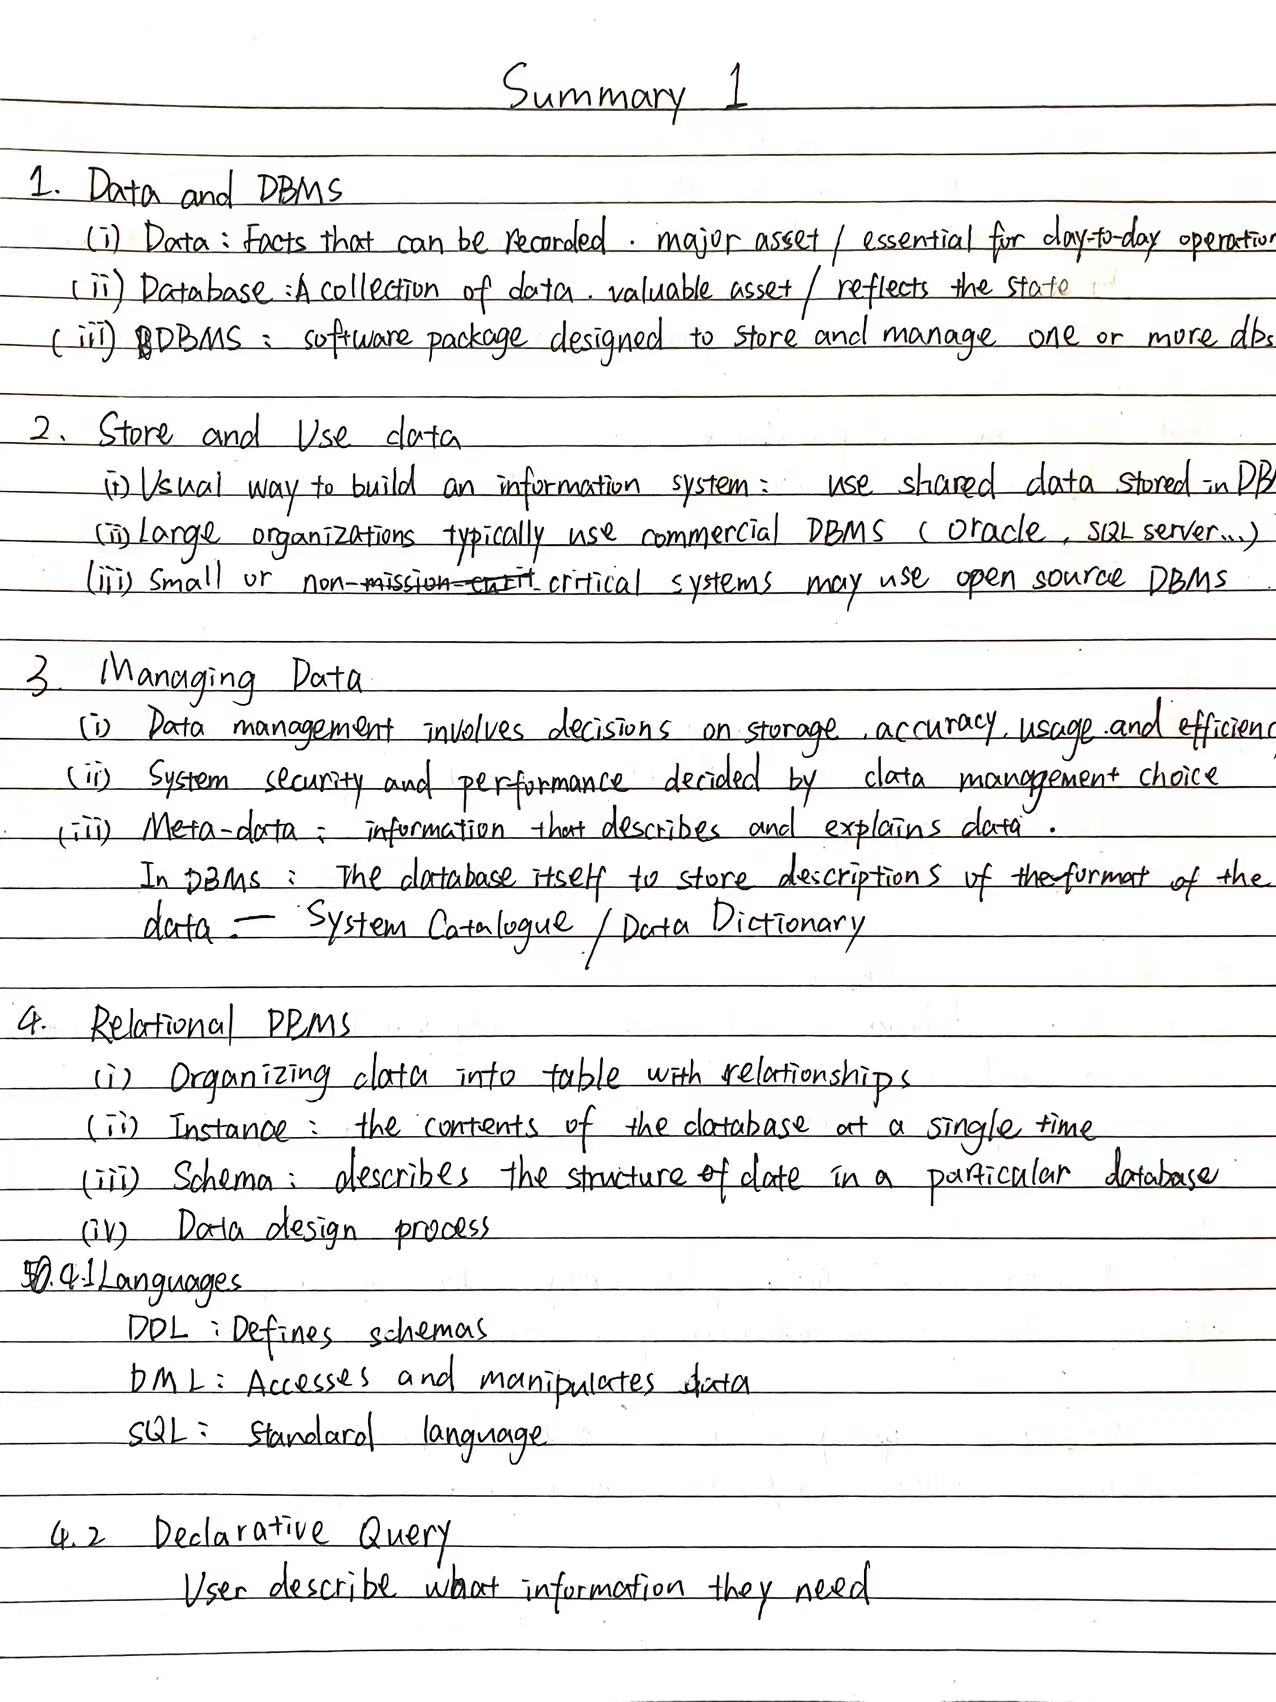 Summary 1
1. Data and DBMS
(i) Data : Facts that can be recorded . major asset / essential for day-to-day operation
(ii) Database : A collection of data . valuable asset / reflects the state
(iii) DBMS : software package designed to store and manage one or more dbs
2. Store and Use data
(i) Usual way to build an information system : use shared data stored in DB
(ii) Large organizations typically use commercial DBMS ( Oracle , SQL server...)
(iii) Small or non-mission-crit critical systems may use open source DBMS
3. Managing Data
(i) Data management involves decisions on storage , accuracy , usage . and efficienc
(ii) System security and performance decided by data management choice
(iii) Meta-data : information that describes and explains data .
In DBMS : The database itself to store descriptions of the format of the
data . — System Catalogue / Data Dictionary
4. Relational DBMS
(i) Organizing data into table with relationships
(ii) Instance : the contents of the database at a single time
(iii) Schema : describes the structure of date in a particular database
(iv) Data design process
4.1 Languages
DDL : Defines schemas
DML : Accesses and manipulates data
SQL : Standard language
4.2 Declarative Query
User describe what information they need